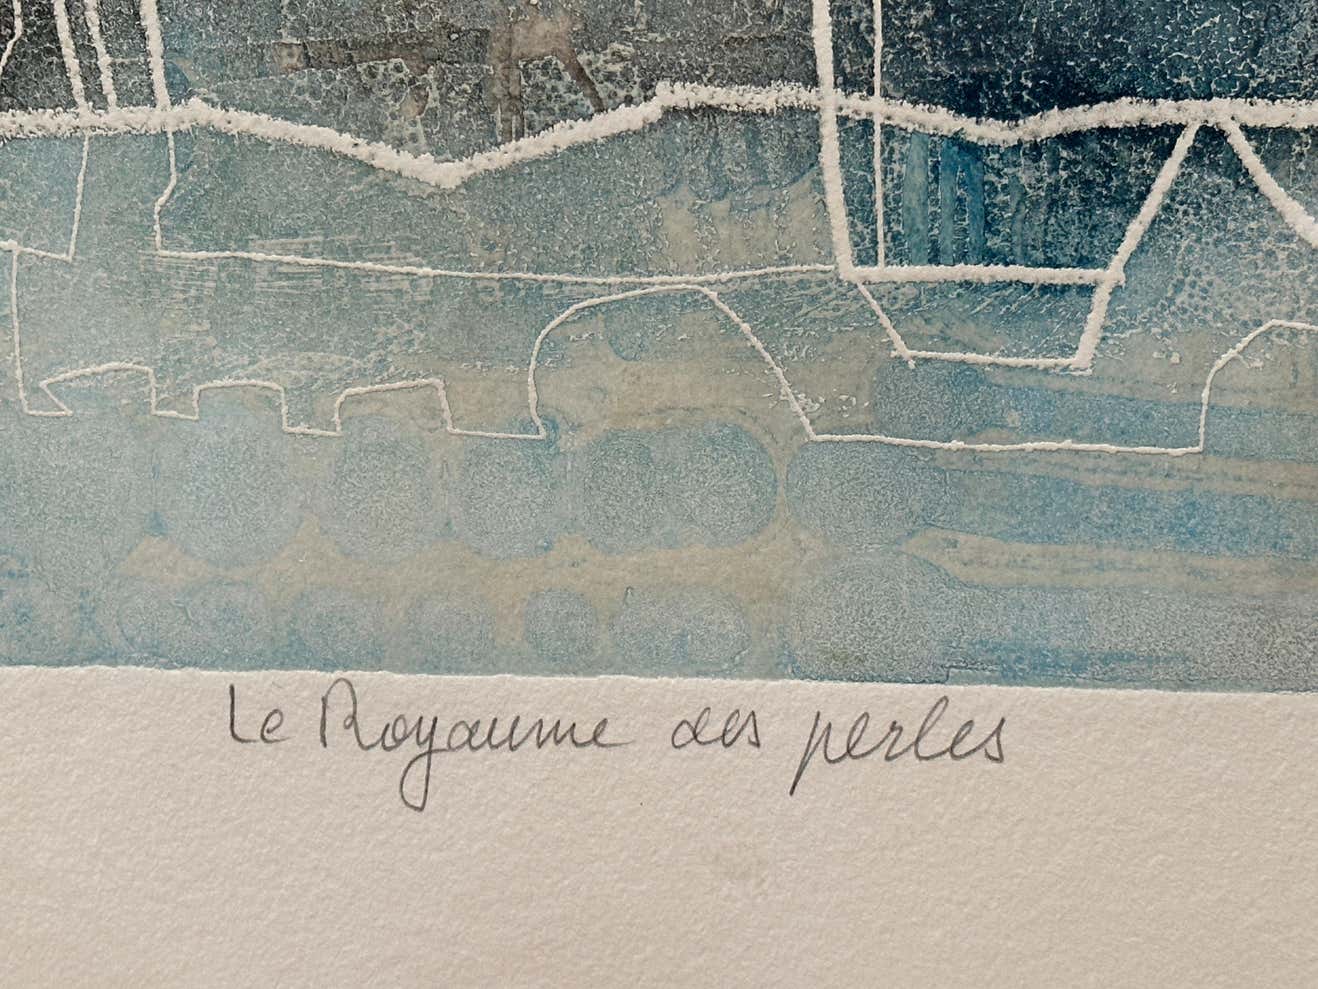 Le Royaume des perles